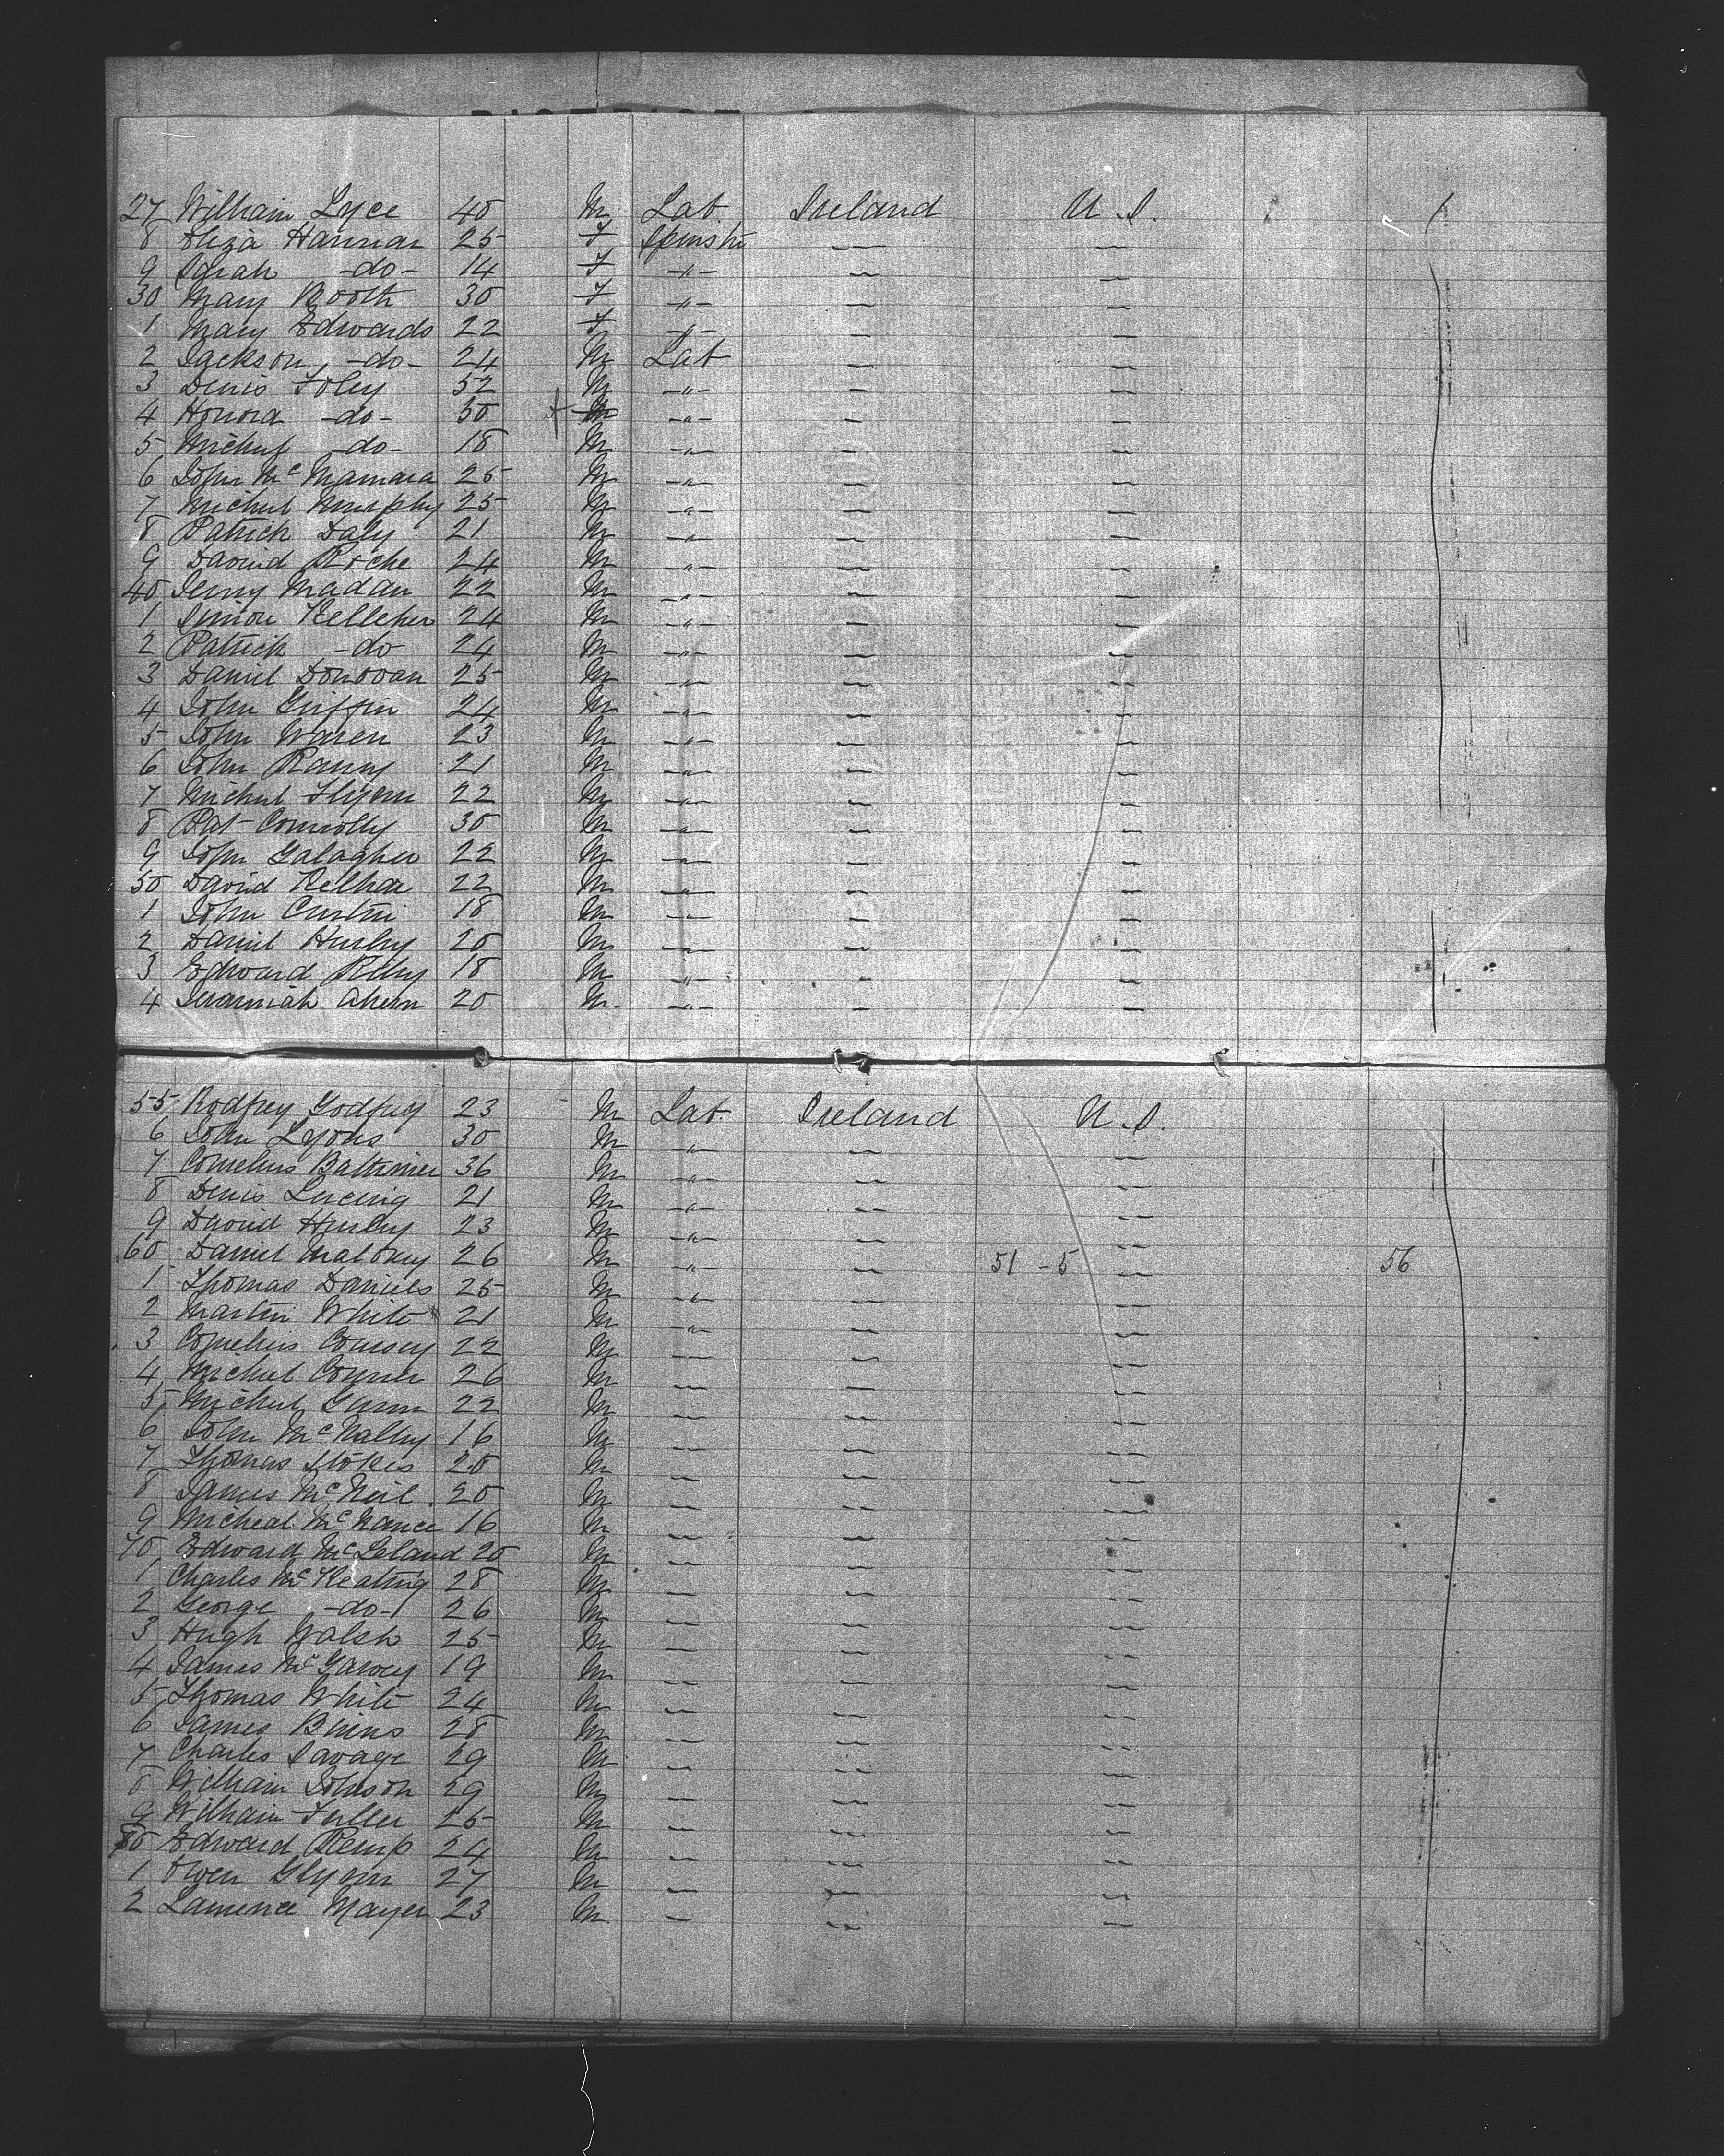 27 William Lyce 40 M Lab. Ireland U.S.
8 Eliza Hannan 25 F Spinstr — —
9 Sarah -do- 14 F -"- — —
30 Mary Booth 30 F -"- — —
1 Mary Edwards 22 F -"- — —
2 Jackson -do- 24 M Lab — —
3 Denis Foley 52 M -"- — —
4 Honora -do- 50 f -"- — —
5 Michul -do- 18 M -"- — —
6 John McMamara 25 M -"- — —
7 Michul Murphy 25 M -"- — —
8 Patrick Daly 21 M -"- — —
9 David Roche 24 M -"- — —
40 Jerry Madan 22 M -"- — —
1 Simon Kelleher 24 M -"- — —
2 Patrick -do- 24 M -"- — —
3 Daniel Donovan 25 M -"- — —
4 John Griffin 24 M -"- — —
5 John Waren 23 M -"- — —
6 John Ranny 21 M -"- — —
7 Michul Flynn 22 M -"- — —
8 Pat Connolly 30 M -"- — —
9 John Galagher 22 M -"- — —
50 David 22 M -"- — —
1 John Curtin 18 M -"- — —
2 Daniel Hurly 20 M -"- — —
3 Edward 18 M -"- — —
4 Jeramiah Ahern 20 M. -"- — —
55 Rodfrey Godfrey 23 M Lab. Ireland U.S.
6 John Lyons 30 M -"- — —
7 Cornelius 36 M -"- — —
8 Denis 21 M -"- — —
9 David Hurley 23 M -"- — —
60 Daniel Malony 26 M -"- — 51 - 5 — 56
1 Thomas Daniels 25 M -"- — —
2 Martin White 21 M -"- — —
3 Cornelius Coursey 22 M — — —
4 Michul Conner 26 M — — —
5 Michul 22 M — — —
6 John McNally 16 M — — —
7 Thomas Stokes 20 M — — —
8 James McNeil 20 M — — —
9 Micheal McNance 16 M — — —
70 Edward McLeland 20 M — — —
1 Charles McKeating 28 M — — —
2 George -do- 26 M — — —
3 Hugh Walsh 25 M — — —
4 James McGarvey 19 M — — —
5 Thomas White 24 M — — —
6 James Birns 28 M — — —
7 Charles Savage 29 M — — —
8 William Johnson 29 M — — —
9 William Fuller 25 M — — —
80 Edward Kemp 24 M — — —
1 Owen Glynn 27 M — — —
2 Lawrence Mayer 23 M. — — —